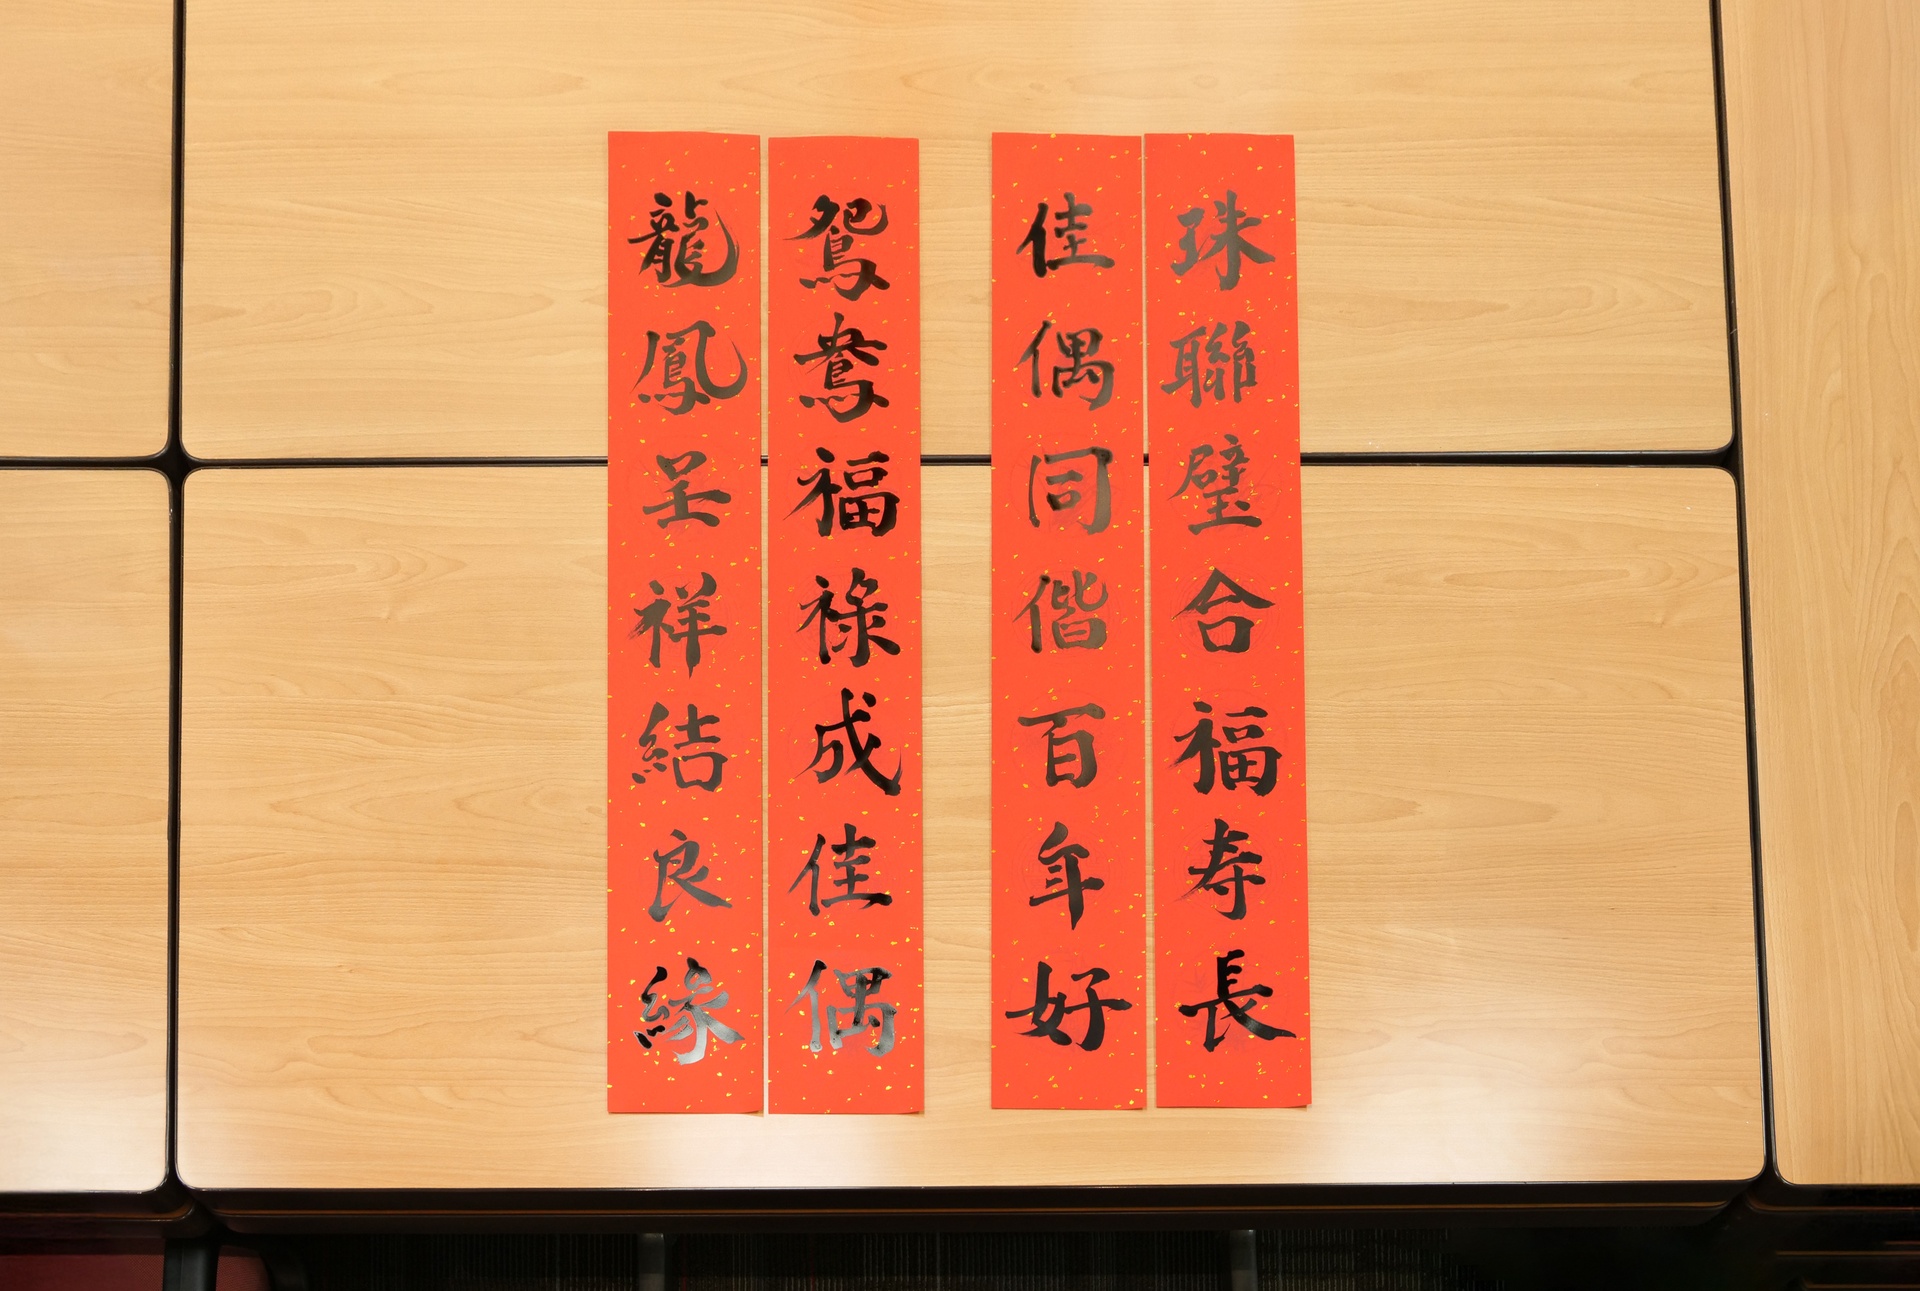 珠聯璧合福寿長
佳偶同偕百年好
鴛鴦福祿成佳偶
龍鳳呈祥結良緣